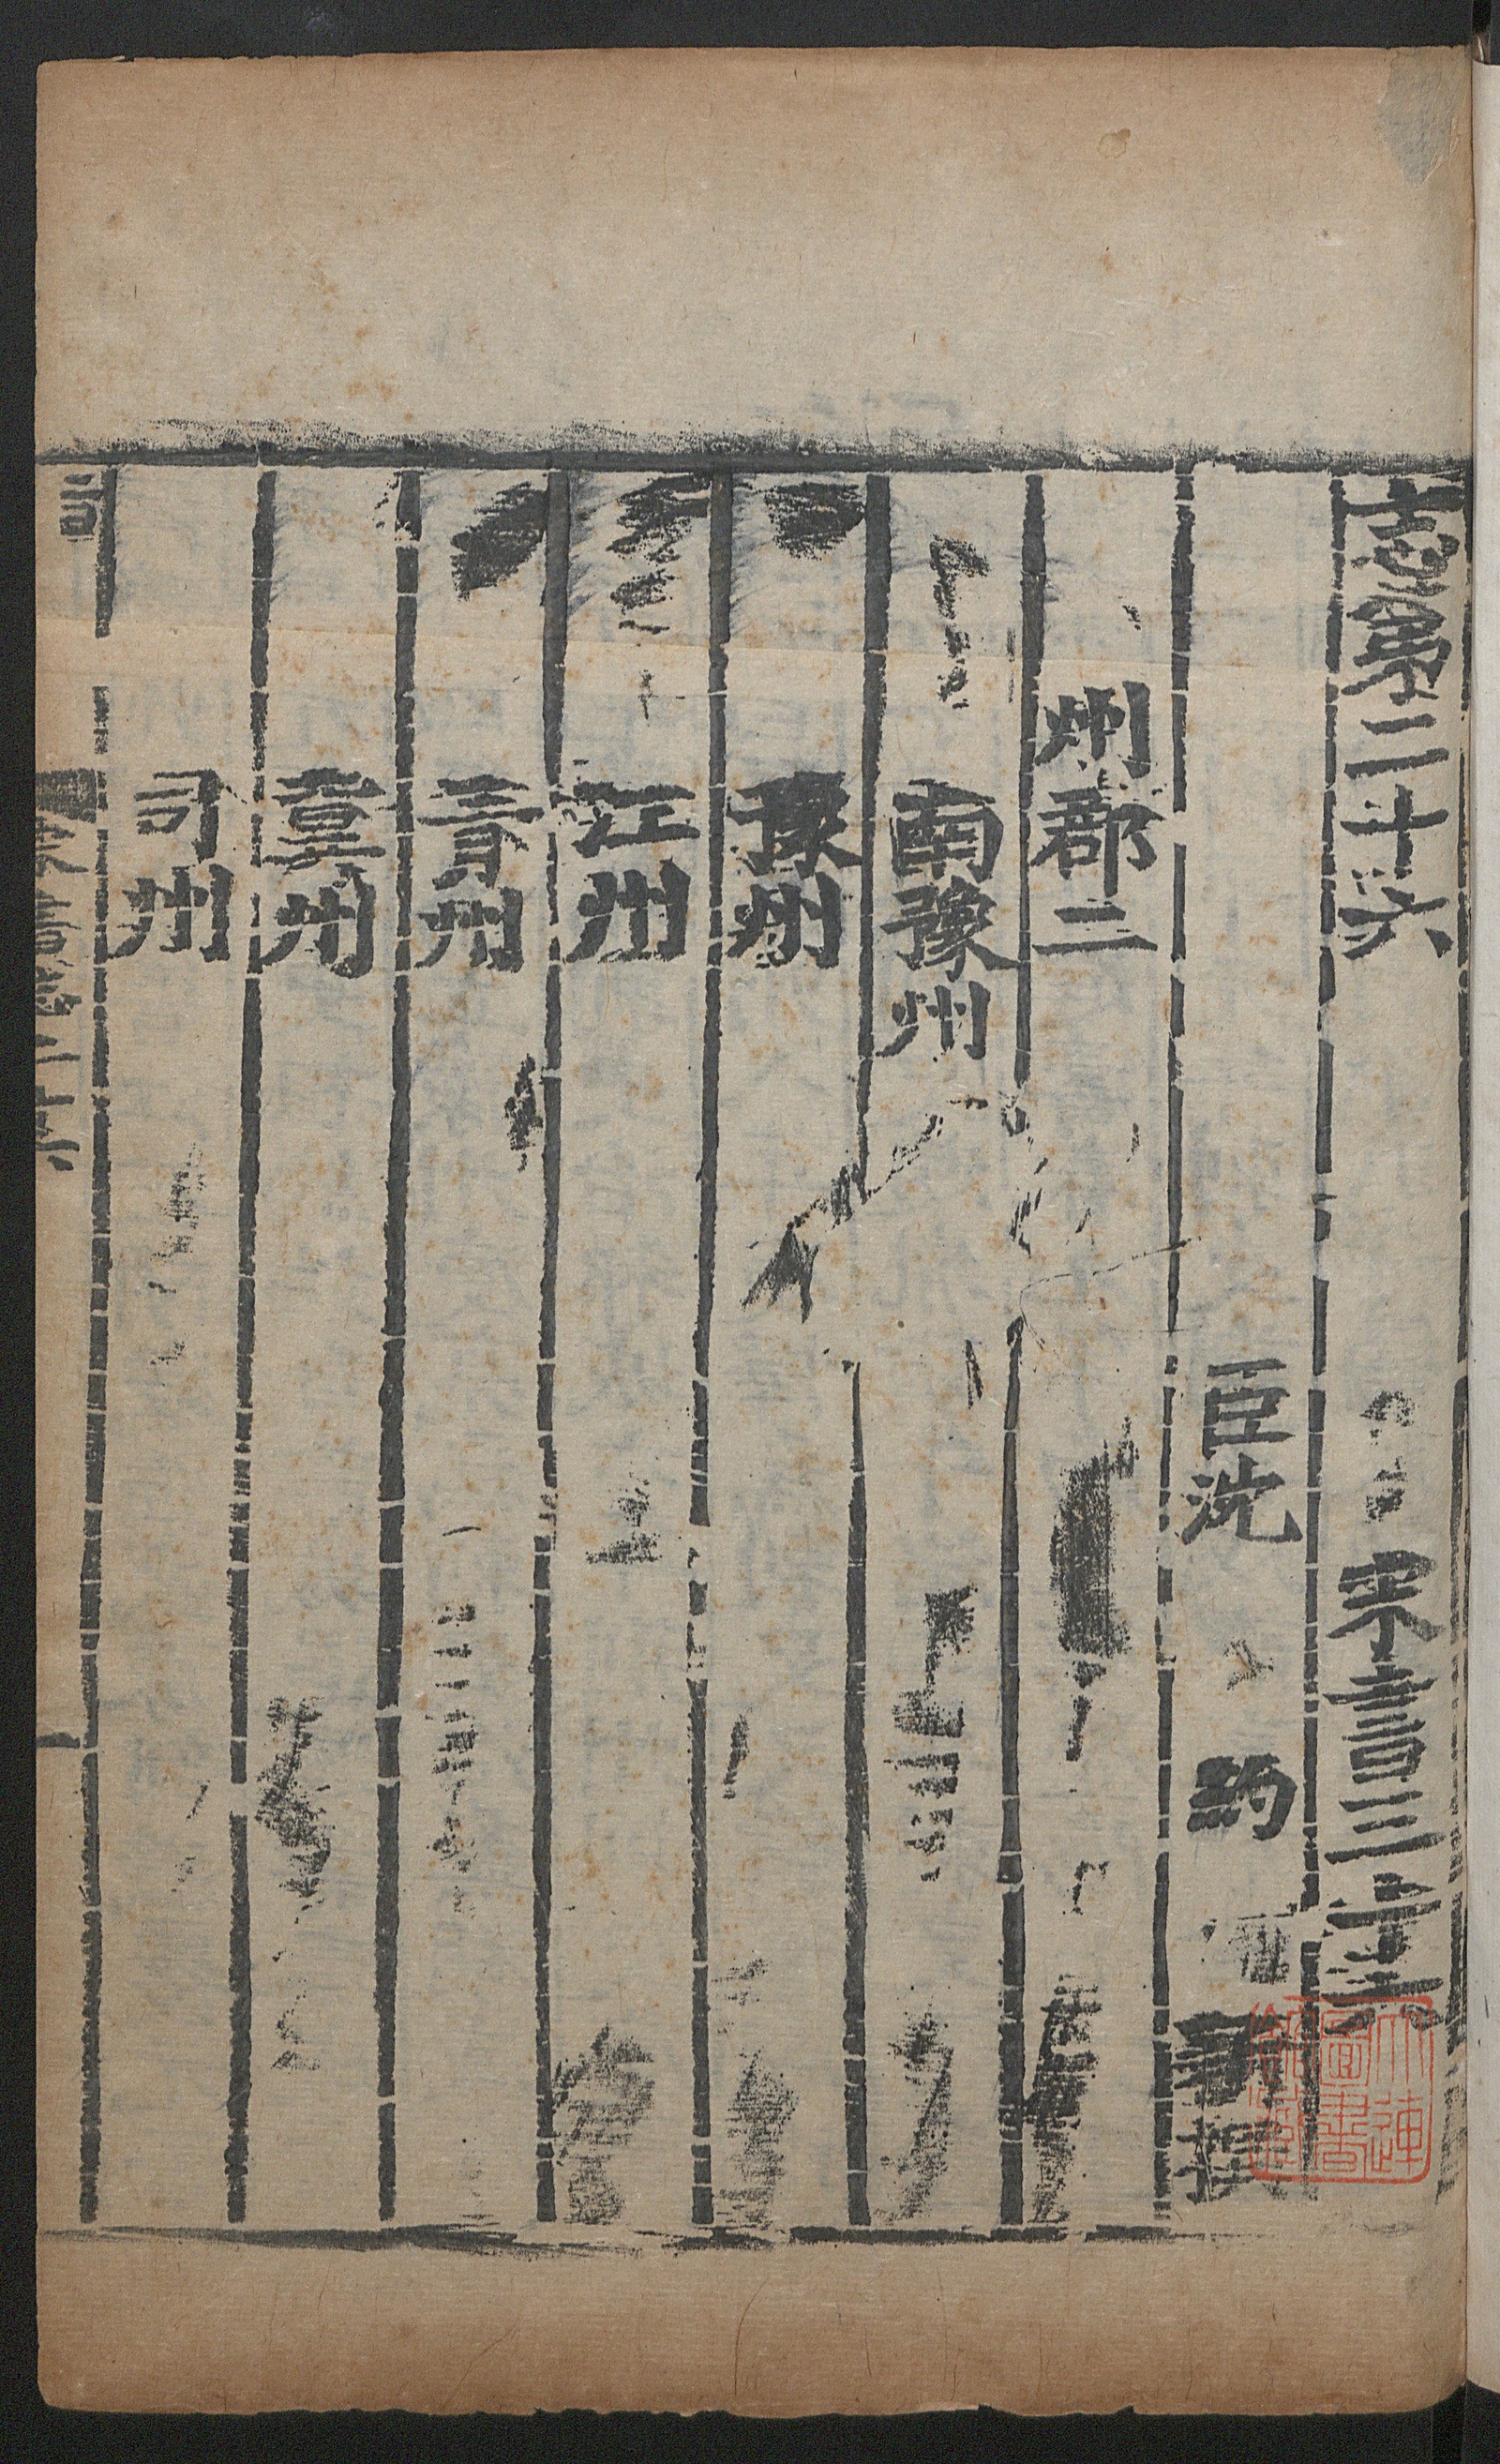 志第二十六 宋書三十六
臣沈 約 新撰
州郡二
南豫州
豫州
江州
青州
冀州
司州
大連
圖書
館藏